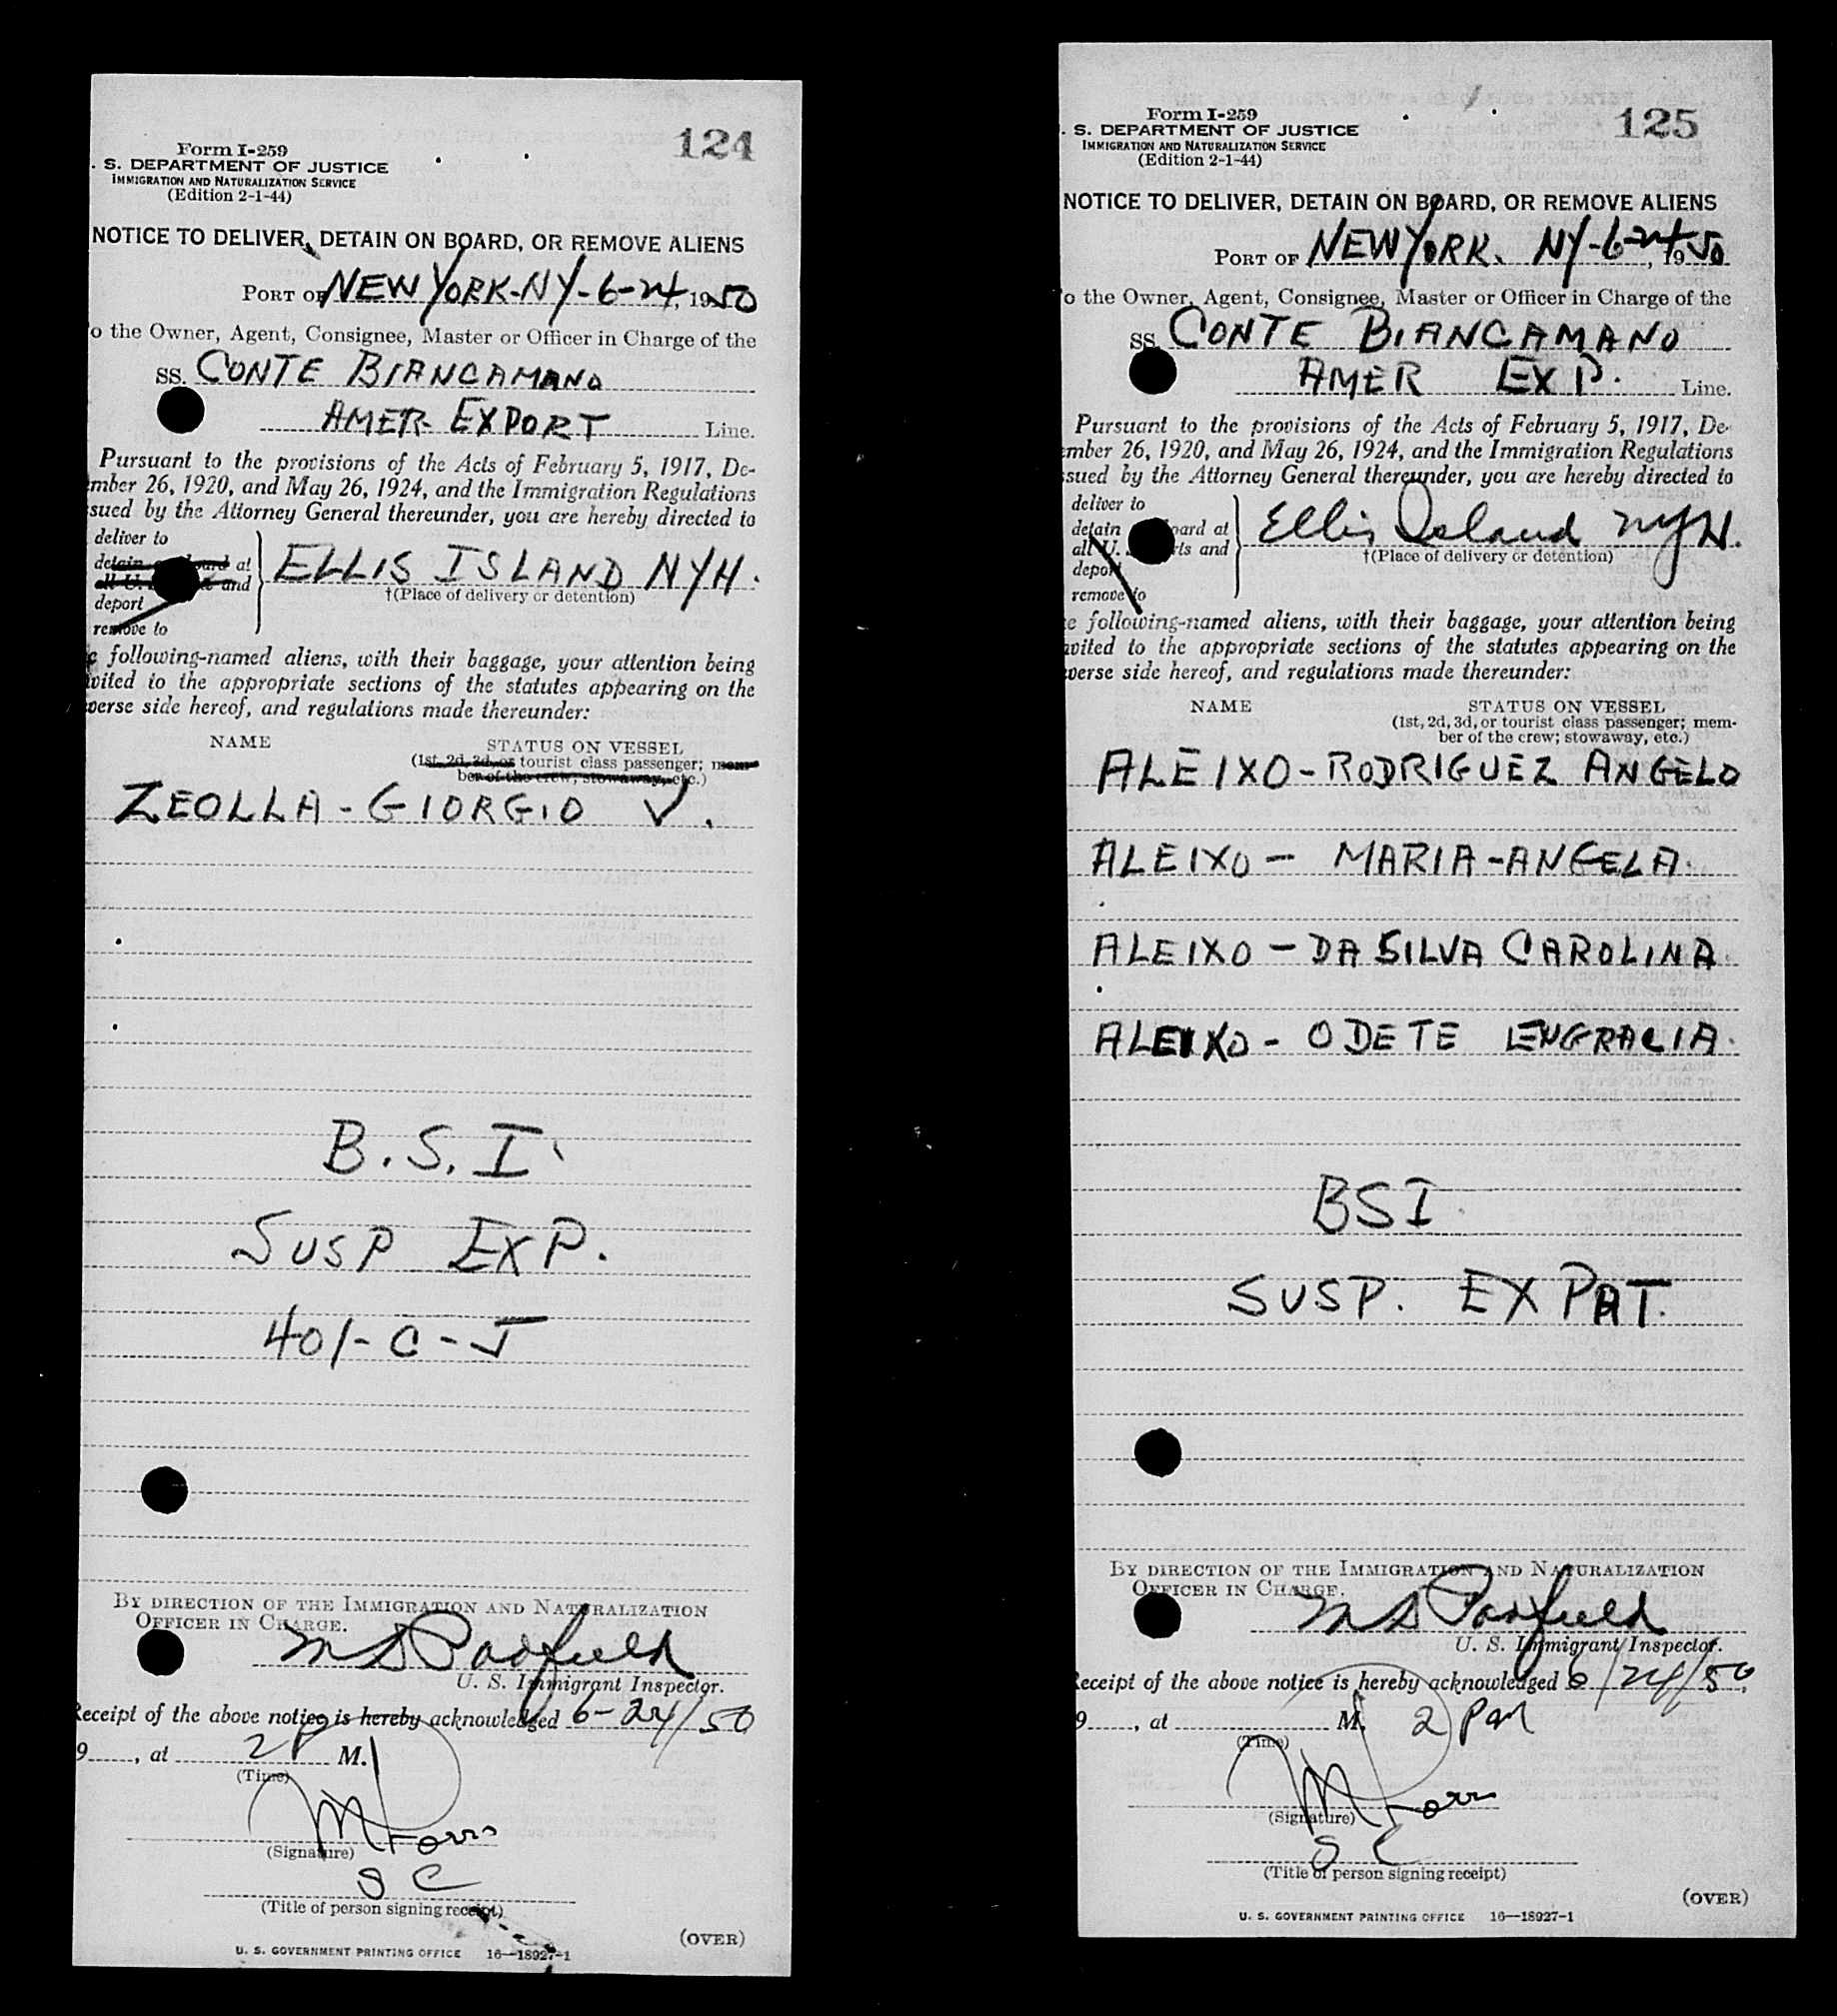 124
Form I-259
. S. DEPARTMENT OF JUSTICE
IMMIGRATION AND NATURALIZATION SERVICE
(Edition 2-1-44)
NOTICE TO DELIVER, DETAIN ON BOARD, OR REMOVE ALIENS
PORT OF NEW YORK-NY-6-24, 1950
o the Owner, Agent, Consignee, Master or Officer in Charge of the
SS. CONTE BIANCAMANO
AMER EXPORT Line.
Pursuant to the provisions of the Acts of February 5, 1917, De-
mber 26, 1920, and May 26, 1924, and the Immigration Regulations
ssued by the Attorney General thereunder, you are hereby directed to
deliver to
detain board at
all U. and
deport
remove to
ELLIS ISLAND NYH.
†(Place of delivery or detention)
e following-named aliens, with their baggage, your attention being
vited to the appropriate sections of the statutes appearing on the
verse side hereof, and regulations made thereunder:
NAME STATUS ON VESSEL
(1st, 2d, 3d, or tourist class passenger; mem-
ber of the crew; stowaway, etc.)
ZEOLLA - GIORGIO V.
B.S.I.
SUSP EXP.
401-C-J
BY DIRECTION OF THE IMMIGRATION AND NATURALIZATION
OFFICER IN CHARGE.
M S Padfield
U. S. Immigrant Inspector.
Receipt of the above notice is hereby acknowledged 6-24/50
9......, at 2 P M.
(Time)
(Signature)
S C
(Title of person signing receipt)
(OVER)
U. S. GOVERNMENT PRINTING OFFICE 16—18927-1
125
Form I-259
. S. DEPARTMENT OF JUSTICE
IMMIGRATION AND NATURALIZATION SERVICE
(Edition 2-1-44)
NOTICE TO DELIVER, DETAIN ON BOARD, OR REMOVE ALIENS
PORT OF NEW YORK. NY-6-24, 1950
o the Owner, Agent, Consignee, Master or Officer in Charge of the
SS. CONTE BIANCAMANO
AMER EXP. Line.
Pursuant to the provisions of the Acts of February 5, 1917, De-
mber 26, 1920, and May 26, 1924, and the Immigration Regulations
ssued by the Attorney General thereunder, you are hereby directed to
deliver to
detain oard at
all U. ts and
deport
remove to
Ellis Island NYH.
†(Place of delivery or detention)
e following-named aliens, with their baggage, your attention being
vited to the appropriate sections of the statutes appearing on the
verse side hereof, and regulations made thereunder:
NAME STATUS ON VESSEL
(1st, 2d, 3d, or tourist class passenger; mem-
ber of the crew; stowaway, etc.)
ALEIXO - RODRIGUEZ ANGELO
ALEIXO - MARIA-ANGELA.
ALEIXO - DA SILVA CAROLINA.
ALEIXO - ODETE ENGRACIA.
BSI
SUSP. EXPAT.
BY DIRECTION OF THE IMMIGRATION AND NATURALIZATION
OFFICER IN CHARGE.
M S Padfield
U. S. Immigrant Inspector.
Receipt of the above notice is hereby acknowledged 6/24/50,
9......, at M. 2 PM
(Time)
(Signature)
S C
(Title of person signing receipt)
(OVER)
U. S. GOVERNMENT PRINTING OFFICE 16—18927-1